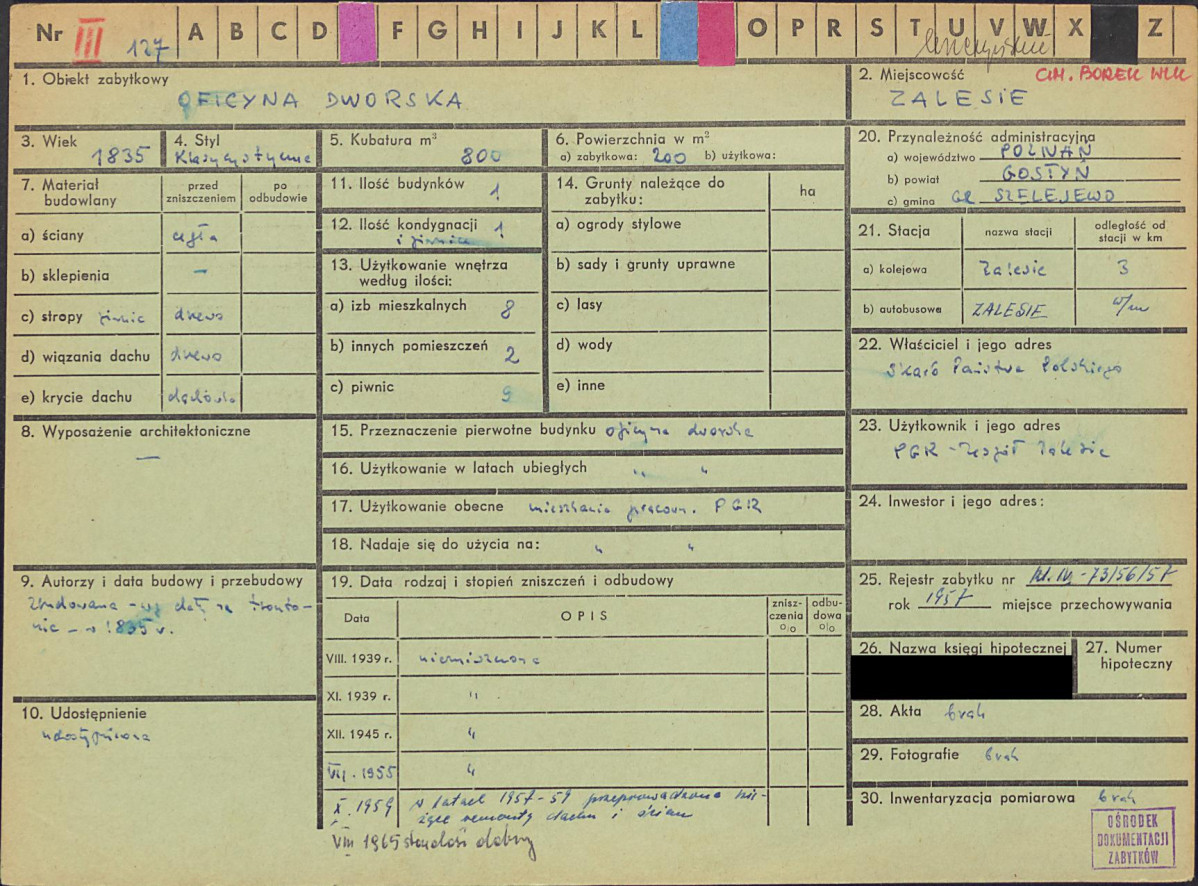 Nr III 127 A B C D F G H I J K L O P R S T U V W X Z
1. Obiekt zabytkowy
OFICYNA DWORSKA
2. Miejscowość GM. BOREK WLK
ZALESIE
3. Wiek
1835
4. Styl
Klasycystyczna
5. Kubatura m³
800
6. Powierzchnia w m²
a) zabytkowa: 200 b) użytkowa:
20. Przynależność administracyjna
a) województwo POZNAŃ
b) powiat GOSTYŃ
c) gmina GR SZELEJEWO
7. Materiał budowlany
przed zniszczeniem
po odbudowie
a) ściany cegła
b) sklepienia —
c) stropy piwnic drewo
d) wiązania dachu drewo
e) krycie dachu dachówka
11. Ilość budynków 1
12. Ilość kondygnacji 1
i piwnice
13. Użytkowanie wnętrza
według ilości:
a) izb mieszkalnych 8
b) innych pomieszczeń 2
c) piwnic 9
14. Grunty należące do
zabytku:
ha
a) ogrody stylowe
b) sady i grunty uprawne
c) lasy
d) wody
e) inne
21. Stacja
nazwa stacji
odległość od
stacji w km
a) kolejowa Zalesie 3
b) autobusowa ZALESIE w/m
22. Właściciel i jego adres
Skarb Państwa Polskiego
8. Wyposażenie architektoniczne
—
15. Przeznaczenie pierwotne budynku oficyna dworska
16. Użytkowanie w latach ubiegłych " "
17. Użytkowanie obecne mieszkania pracown. PGR
18. Nadaje się do użycia na: " "
23. Użytkownik i jego adres
PGR - Zespół Zalesie
24. Inwestor i jego adres:
9. Autorzy i data budowy i przebudowy
Zbudowana - wg daty na fronto-
nie - w 1835 r.
19. Data rodzaj i stopień zniszczeń i odbudowy
Data
OPIS
znisz-
czenia
o/o
odbu-
dowa
o/o
VIII. 1939 r. niezniszczona
XI. 1939 r. "
XII. 1945 r. "
VII. 1955 "
X. 1959 w latach 1957-59 przeprowadzono bie-
żące remonty dachu i ścian
VIII 1965 stan dość dobry
25. Rejestr zabytku nr Kl. IV - 73/56/57
rok 1957 miejsce przechowywania
26. Nazwa księgi hipotecznej
27. Numer
hipoteczny
10. Udostępnienie
udostępniona
28. Akta brak
29. Fotografie brak
30. Inwentaryzacja pomiarowa brak
OŚRODEK
DOKUMENTACJI
ZABYTKÓW